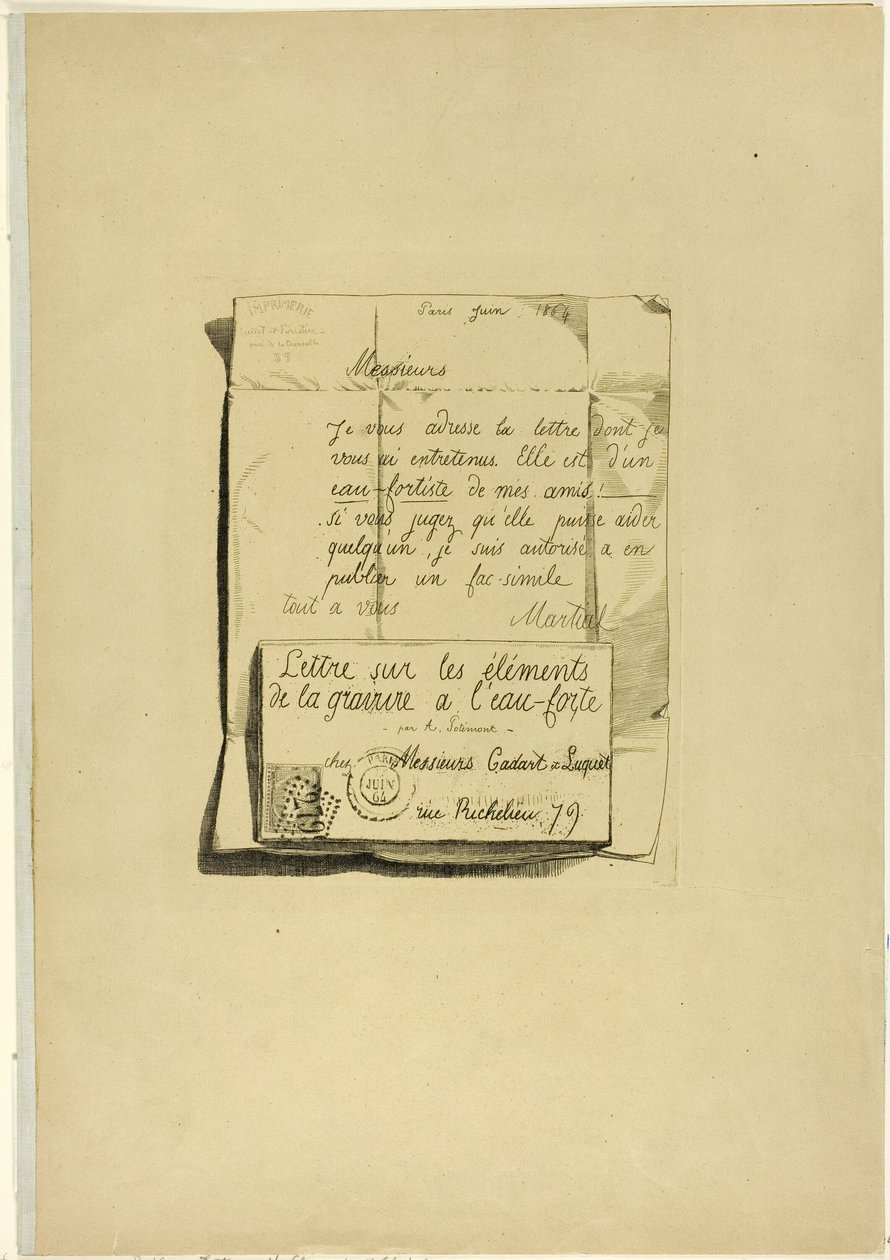 IMPRIMERIE
35
Paris Juin 1864
Messieurs
Je vous adresse la lettre dont je
vous ai entretenus. Elle est d'un
eau-fortiste de mes amis!
si vous jugez qu'elle puisse aider
quelqu'un, je suis autorisé a en
publier un fac-simile
tout a vous
Martial
Lettre sur les éléments
de la gravure a l'eau-forte
- par A. Potémont -
chez Messieurs Cadart & Luquet
PARIS
JUIN
64
rue Richelieu 79